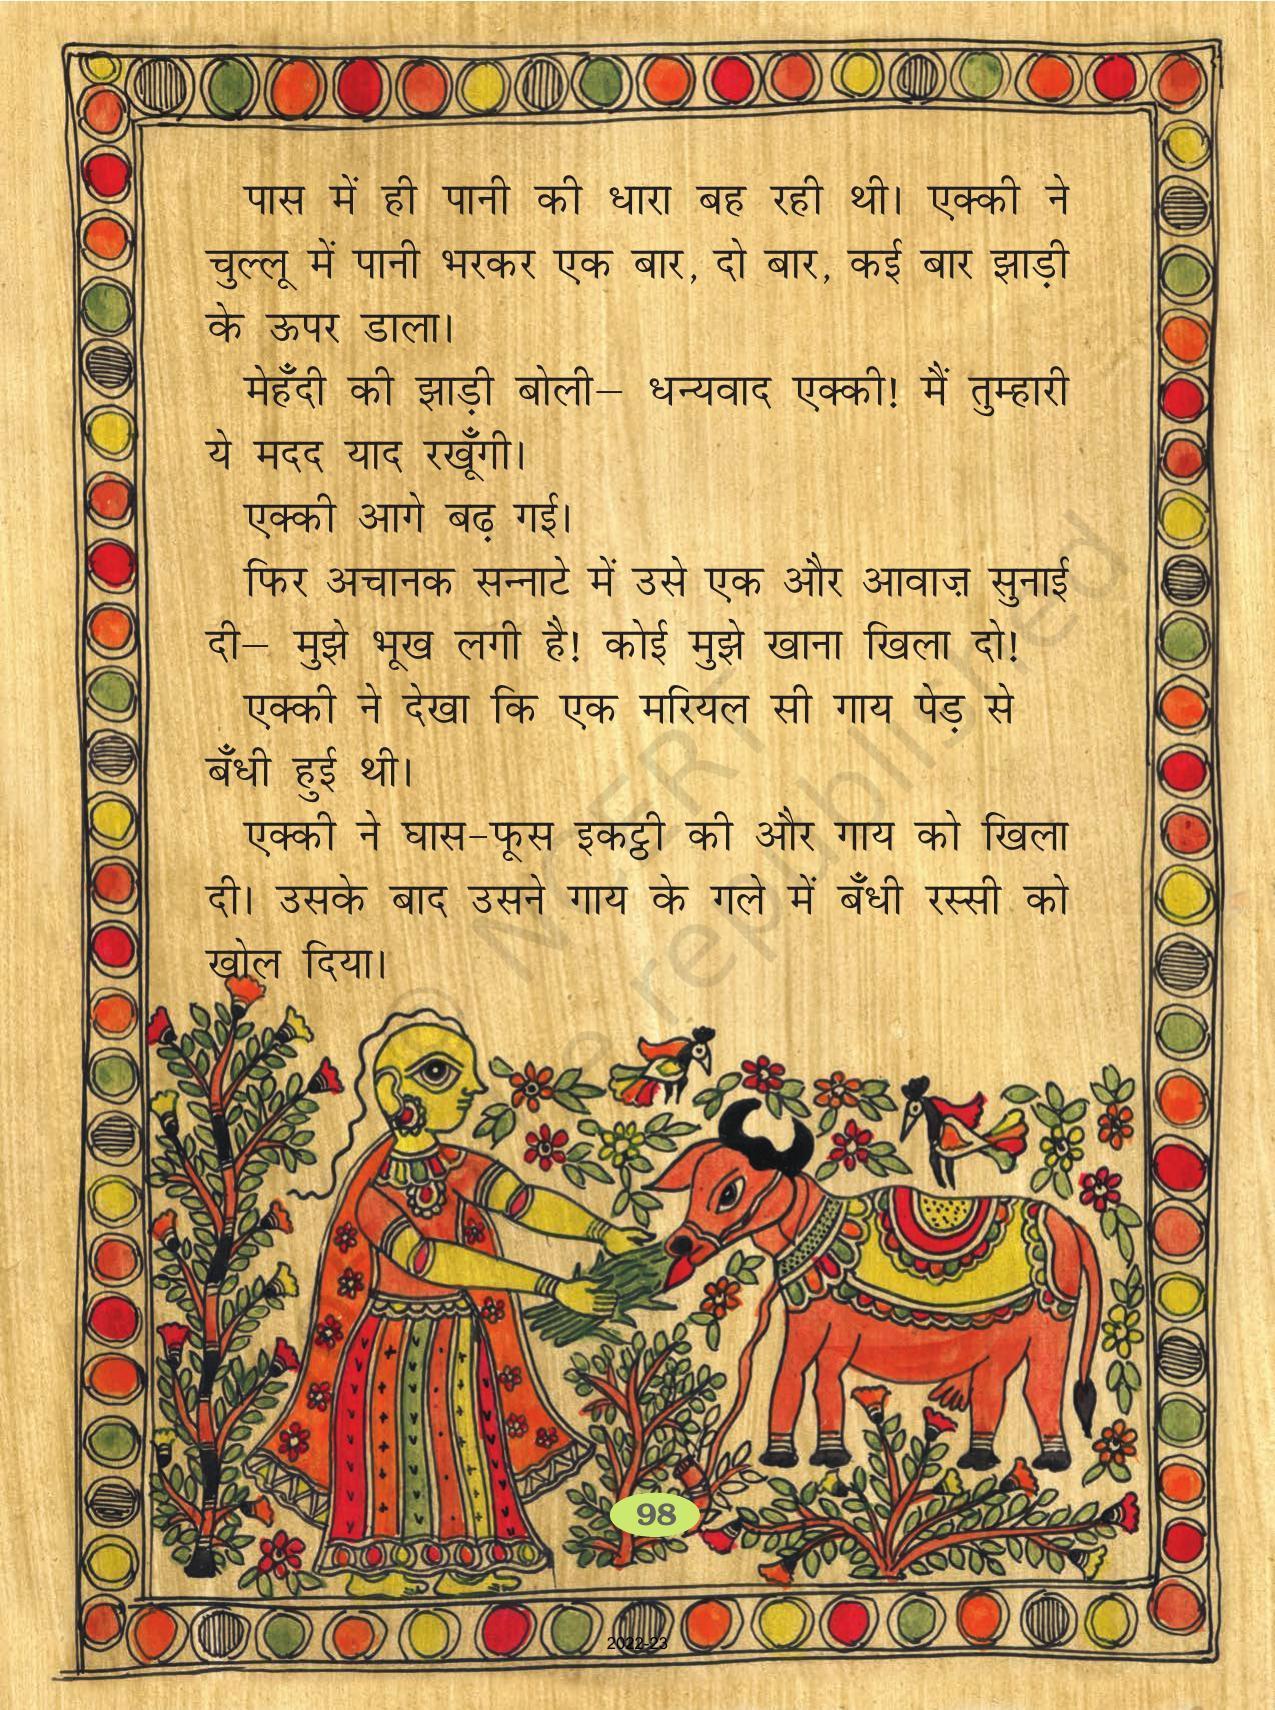 पास में ही पानी की धारा बह रही थी। एक्की ने
चुल्लू में पानी भरकर एक बार, दो बार, कई बार झाड़ी
के ऊपर डाला।
मेहँदी की झाड़ी बोली– धन्यवाद एक्की! मैं तुम्हारी
ये मदद याद रखूँगी।
एक्की आगे बढ़ गई।
फिर अचानक सन्नाटे में उसे एक और आवाज़ सुनाई
दी– मुझे भूख लगी है! कोई मुझे खाना खिला दो!
एक्की ने देखा कि एक मरियल सी गाय पेड़ से
बँधी हुई थी।
एक्की ने घास-फूस इकट्ठी की और गाय को खिला
दी। उसके बाद उसने गाय के गले में बँधी रस्सी को
खोल दिया।
© NCERT
e republished
98
2022-23